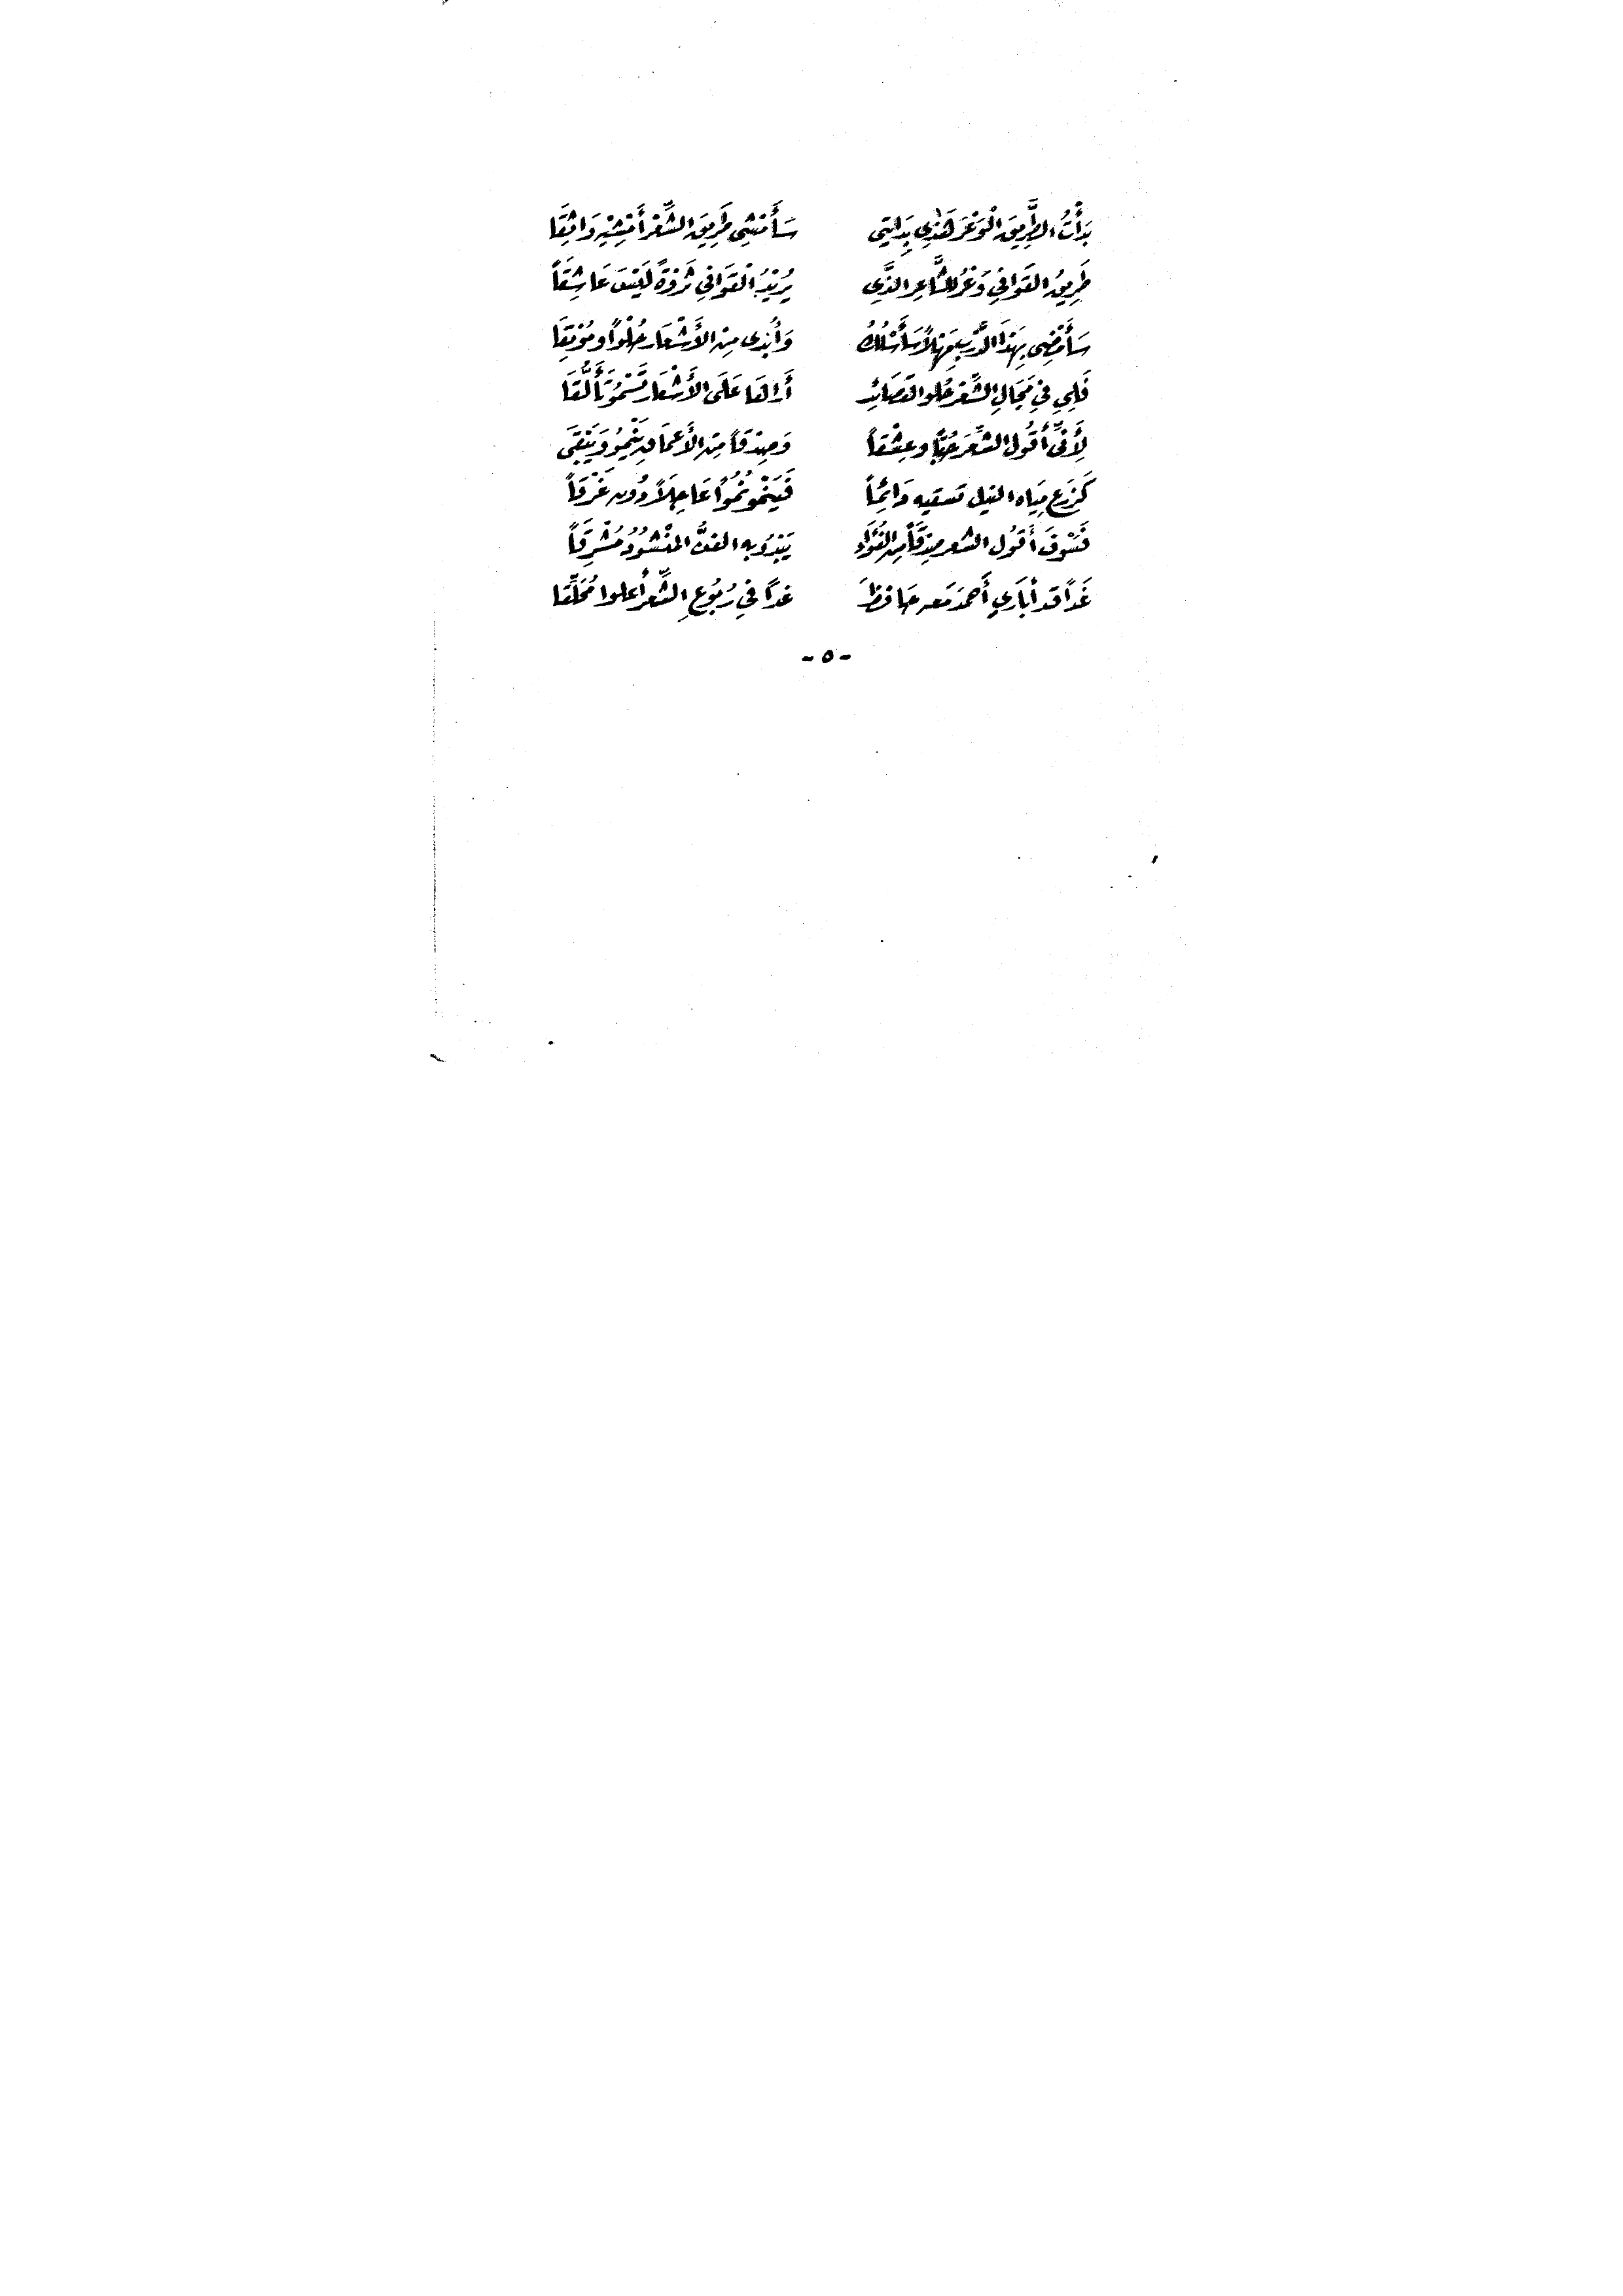 بَدَأْتُ الطَّرِيقَ الْوَعْرَ هَذِي بِدَايَتِي سَأَمْشِي طَرِيقَ الشِّعْرِ أَمْشِيْهِ وَاثِقَا
طَرِيقُ القَوَافِي وَعْرٌ للشَّاعِرِ الذَّي يُرِيْدُ الْقَوَافِي ثَرْوَةً لَيْسَ عَاشِقَاً
سَأَمْضِي بِهَذَا الدَّرْبِ مَهْلاً سَأَسْلُكُ وَأُبْدِي مِنْ الأَشْعَارِ حُلْوًا وَمُوْنِقَا
فَلِي فِي مَجَالِ الشِّعْرِ حُلو القَصَائِدِ أَرَاهَا عَلَى الأَشْعَارِ تَسْمُو تَأَلُّقَا
لِأَنِّي أَقُولُ الشِّعْرَ حُبًّا وعِشْقاً وَصِدْقَاً مِنْ الأَعْمَاقِ يَنْمِيُو وَيَبْقَى
كَزَرعٍ مِيَاه النيل تسقيه دَائِمًا فَيَنْمُو نُمُوًا عَاجِلَاً دُونَ غَرْقَاً
فَسَوْفَ أَقُول الشعر صِدْقَاً مِنَ الفُؤَادِ يَبْدُو بِهِ الفنُّ المنْشُوْدُ مُشْرِقَاً
غَدًا قد أُبَارِي أَحمَدَ مَعَ حَافظَ غدًا فِي رُبُوعِ الشِّعْرِ أعلوا مُحَلِّقا
- ٥ -